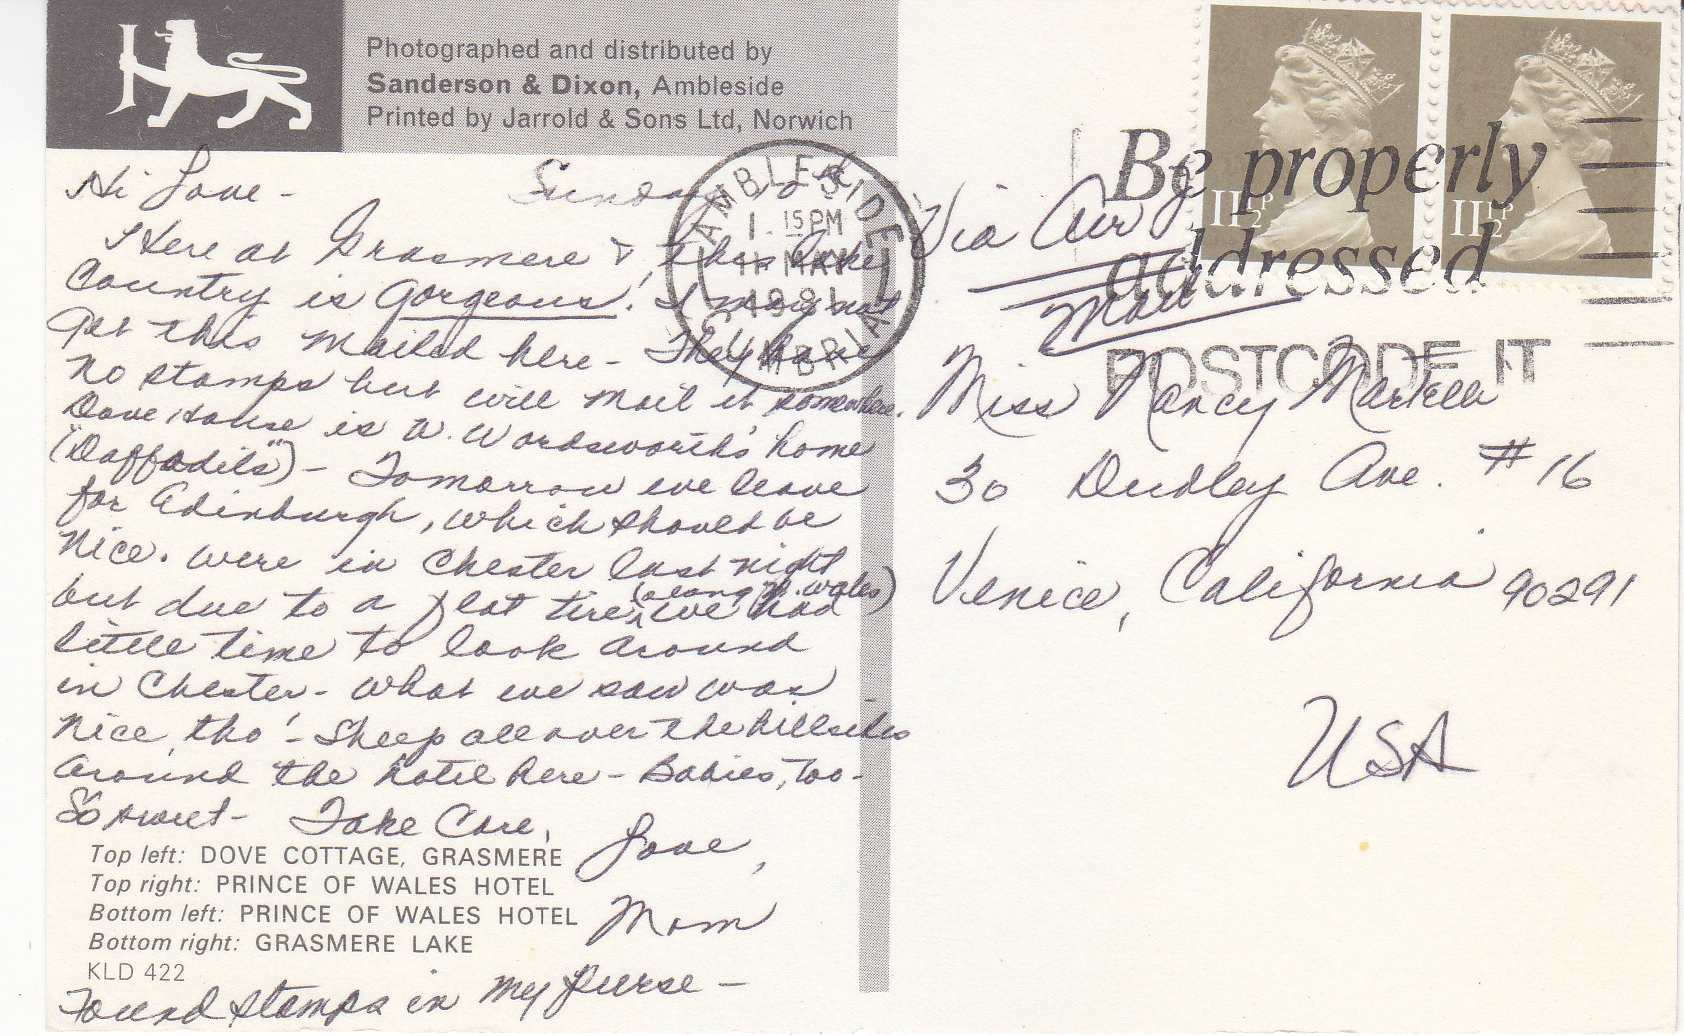 Photographed and distributed by
Sanderson & Dixon, Ambleside
Printed by Jarrold & Sons Ltd, Norwich
Hi Love - Sunday
Here at Grasmere & this Lake
Country is Gorgeous! I may not
get this mailed here - They have
no stamps but will mail it somewhere.
Dove House is W. Wordsworth's home
("Daffodils") - Tomorrow we leave
for Edinburgh, which should be
nice. were in Chester last night
but due to a flat tire, (along N. Wales) we had
little time to look around
in Chester - what we saw was
nice, tho' - Sheep all over the hillsides
around the hotel here - Babies, too -
So sweet - Take Care,
Love,
Mom
Top left: DOVE COTTAGE, GRASMERE
Top right: PRINCE OF WALES HOTEL
Bottom left: PRINCE OF WALES HOTEL
Bottom right: GRASMERE LAKE
KLD 422
Found stamps in my purse -
AMBLESIDE
1. 15 PM
MAY
1981
CUMBRIA
Be properly
addressed
POSTCODE IT
11½P
11½P
Via Air
Mail
Miss Nancy Martelli
30 Dudley Ave. #16
Venice, California 90291
USA